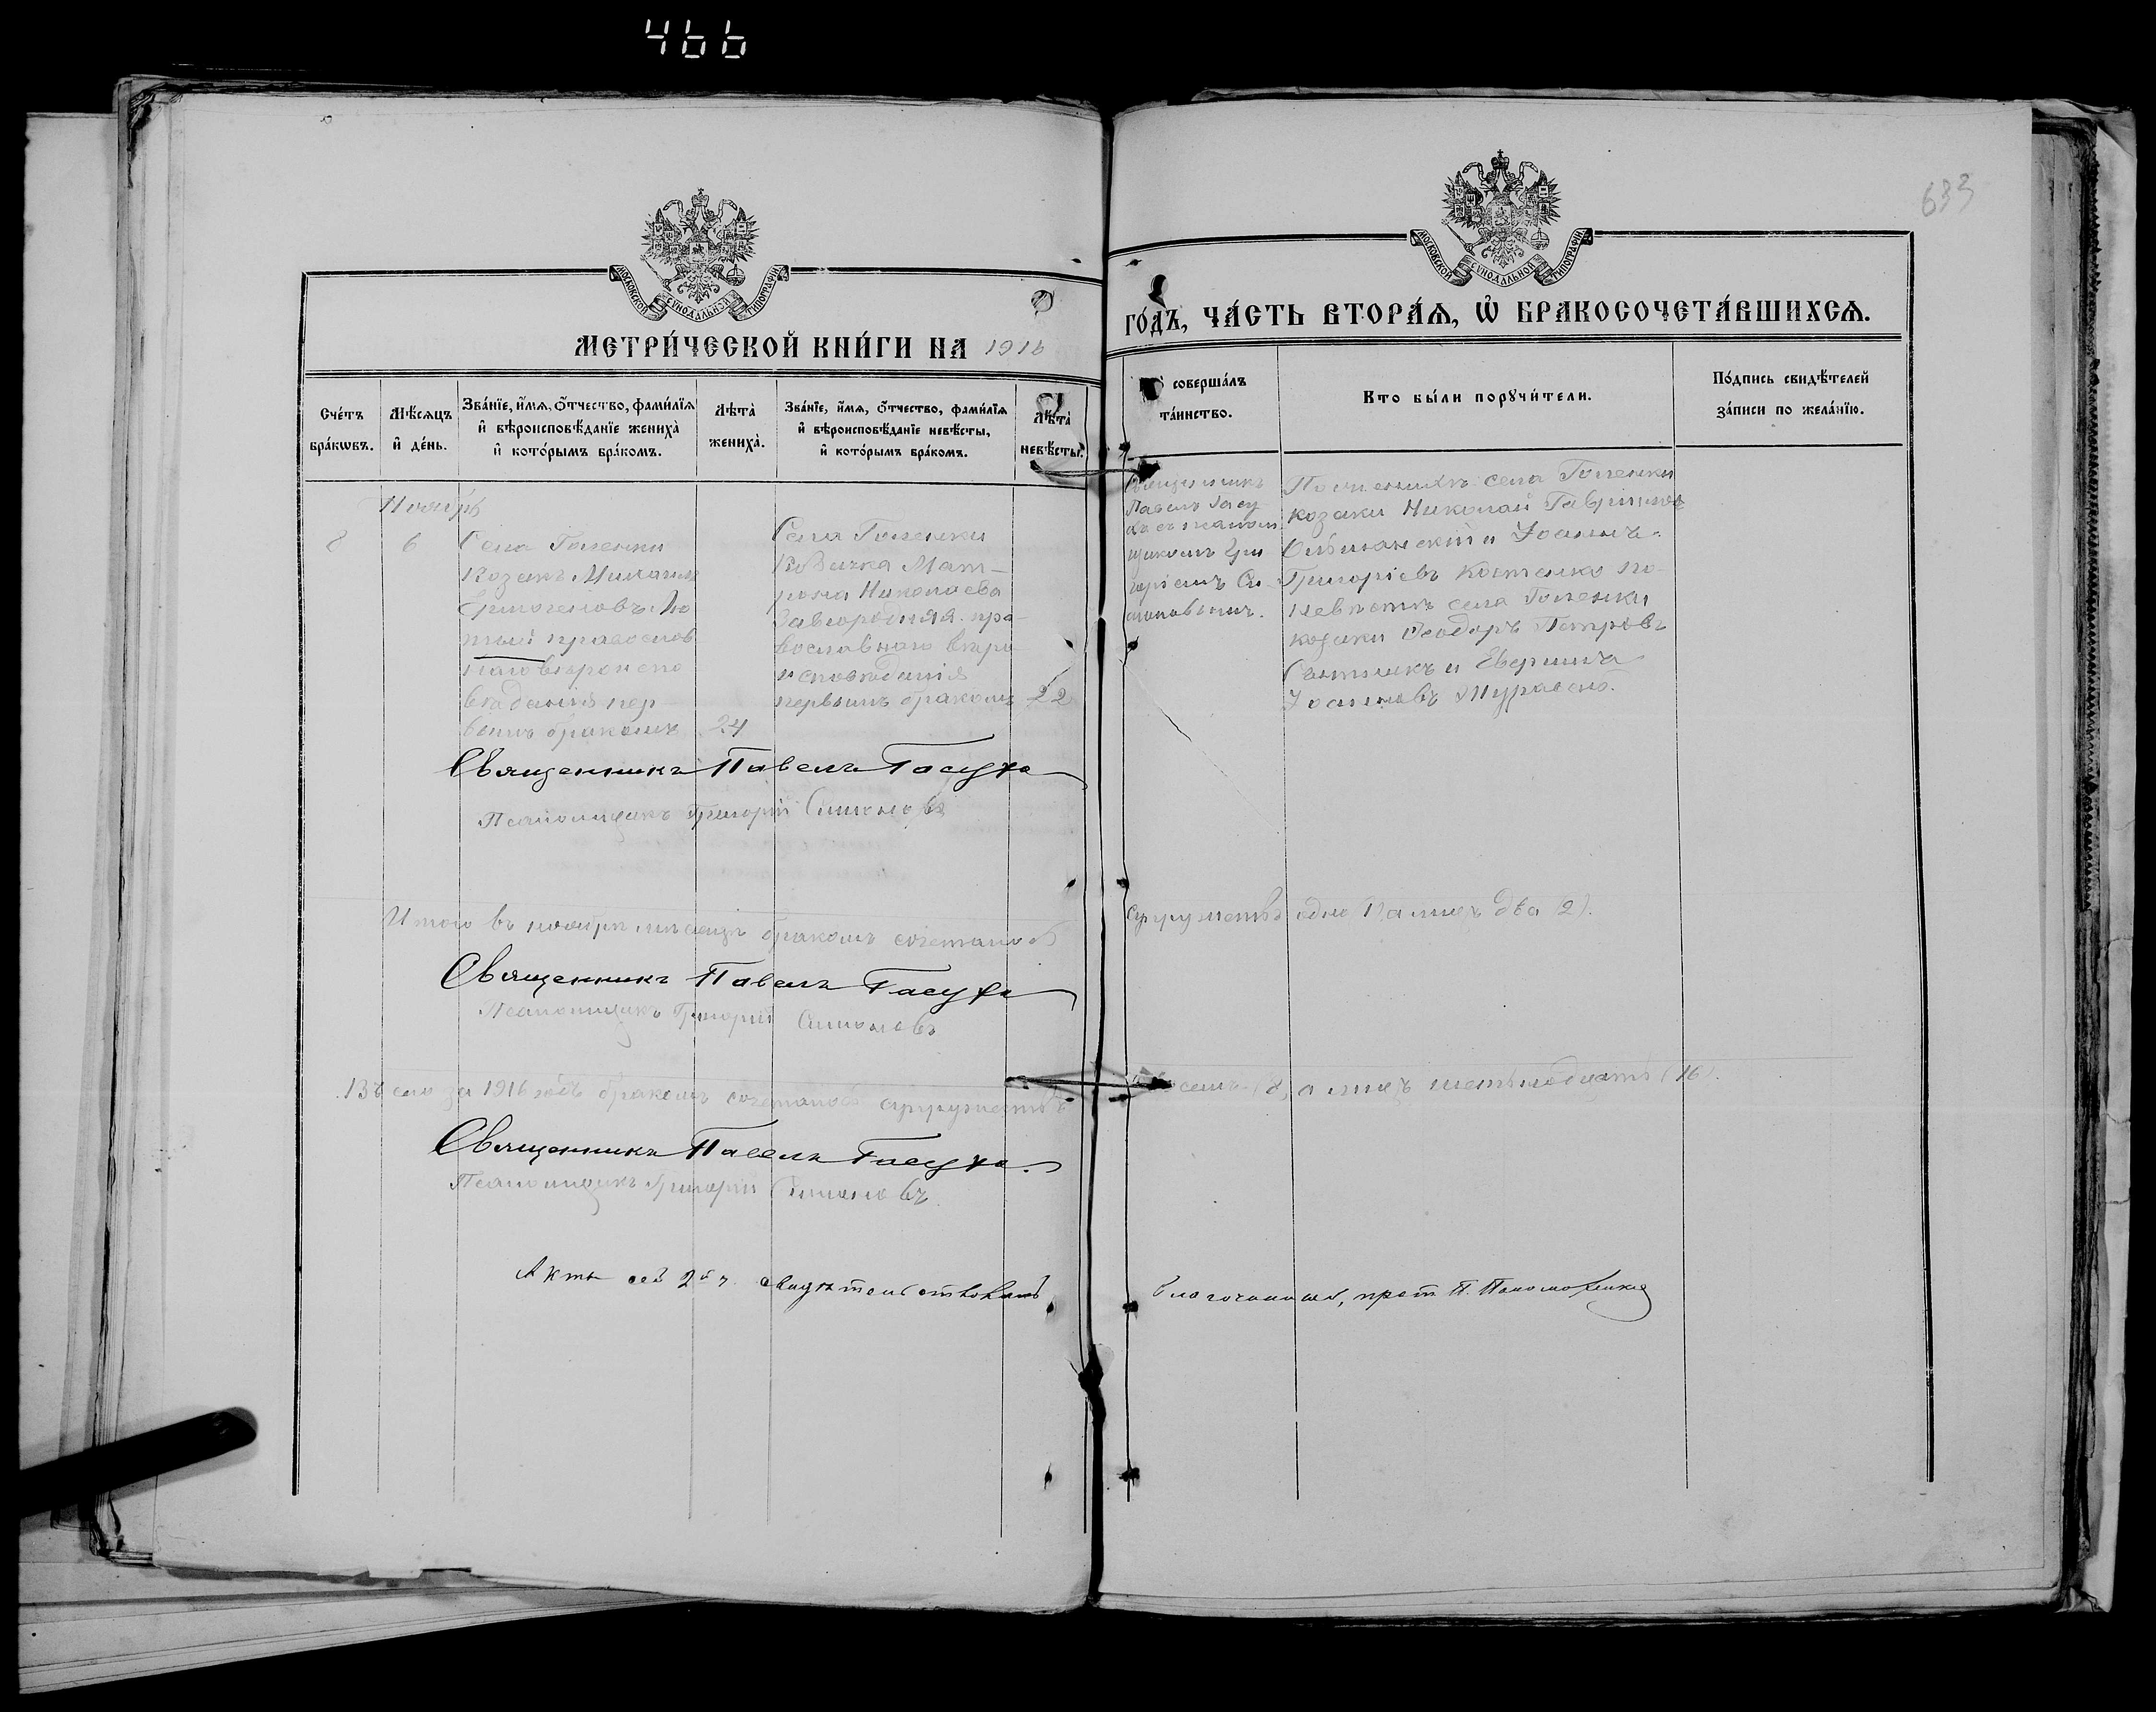 466
633
МОСКОВСКОЙ СѴНОДАЛЬНОЙ ТИПОГРАФІИ
МОСКОВСКОЙ СѴНОДАЛЬНОЙ ТИПОГРАФІИ
МЕТРИ́ЧЕСКОЙ КНИ́ГИ НА 1916
ГО́ДЪ, ЧА́СТЬ ВТОРА́Ѧ, Ѽ БРАКОСОЧЕТА́ВШИХСѦ.
Сче́тъ бра́кѡвъ.
Мѣ́сѧцъ и҆ де́нь.
Зва́нїе, и҆́мѧ, ѻ҆́тчество, фами́лїѧ
и҆ вѣроисповѣ́данїе жениха̀
и҆ кото́рымъ бра́комъ.
Лѣта̀ жениха̀.
Зва́нїе, и҆́мѧ, ѻ҆́тчество, фами́лїѧ
и҆ вѣроисповѣ́данїе невѣ́сты,
и҆ кото́рымъ бра́комъ.
Лѣта̀ невѣ́сты.
соверша́лъ
та́инство.
Кто бы́ли порꙋчи́тели.
По́дпись свидѣ́телей
за́писи по жела́нїю.
Ноябрь
8
6
Села Голенки
Козакъ Михаилъ
Лю
тый православ
наго вѣроиспо
вѣданія пер
вымъ бракомъ
24
Села Голенки
Козачка Мат-
рона Николаева
Завгородняя пра-
вославнаго вѣро
исповѣданія
первымъ бракомъ
22
Священникъ
Павелъ Гасу
ха съ псалом
щикомъ Гри
горіемъ Си-
моновымъ.
По женихѣ села Голенки
козаки Николай Гавриловъ
и Іоаннъ
Григорьевъ Костенко по
невѣстѣ села Голенки
козаки Ѳеодоръ Петровъ
и
Іоанновъ
Священникъ Павелъ Гасуха
Псаломщикъ Григорій Симоновъ
Итого въ ноябрѣ мѣсяцѣ бракомъ сочеталось
супружествъ одно 1) а лицъ два (2).
Священникъ Павелъ Гасуха
Псаломщикъ Григорій Симоновъ
Всего за 1916 годъ бракомъ сочеталось супружествъ
восемь (8, а лицъ шестьнадцать (16).
Священникъ Павелъ Гасуха.
Псаломщикъ Григорій Симоновъ.
Актъ сей 2й ч. свидѣтельствовалъ
благочинный, прот. П.